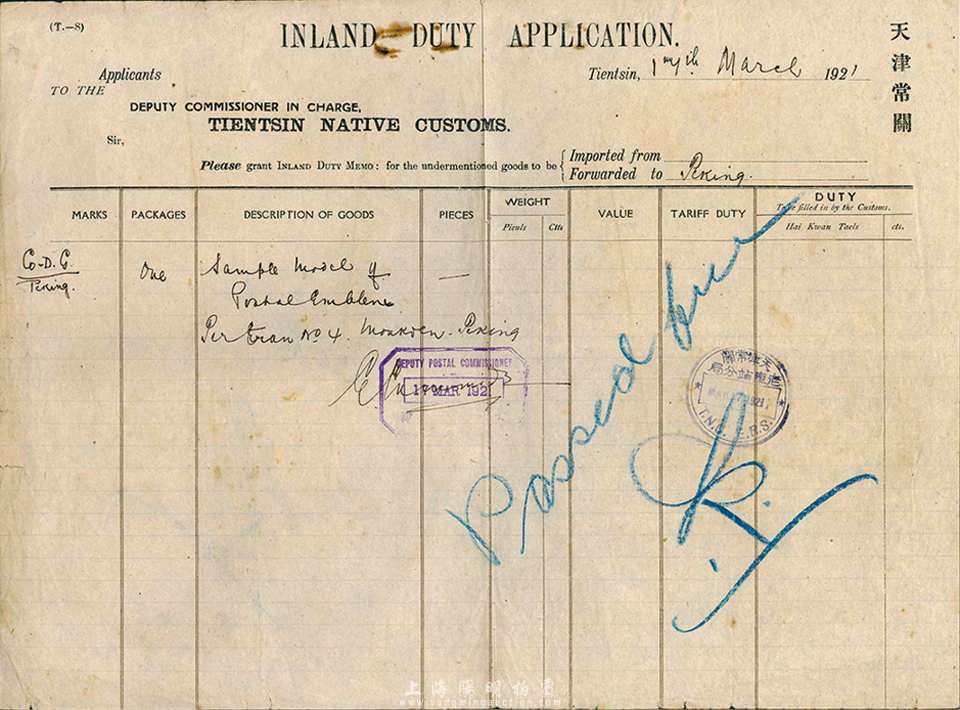 (T.—8)
INLAND DUTY APPLICATION.
天津常關
Applicants
Tientsin, 17th March 1921
TO THE
DEPUTY COMMISSIONER IN CHARGE,
TIENTSIN NATIVE CUSTOMS.
Sir,
Please grant INLAND DUTY MEMO: for the undermentioned goods to be
Imported from
Forwarded to Peking.
MARKS
PACKAGES
DESCRIPTION OF GOODS
PIECES
WEIGHT
Piculs
Ctts
VALUE
TARIFF DUTY
DUTY
To be filled in by the Customs.
Hai Kwan Taels
cts.
Co-D. G.
Peking.
One
Sample Model of
Postal Emblem
Per train No 4. Moukden-Peking
—
DEPUTY POSTAL COMMISSIONER
17 MAR 1921
Passed free
天津常關
分站
1921
T.N.C. E.R.S.
上海陽明拍賣
www.yangmingauction.com